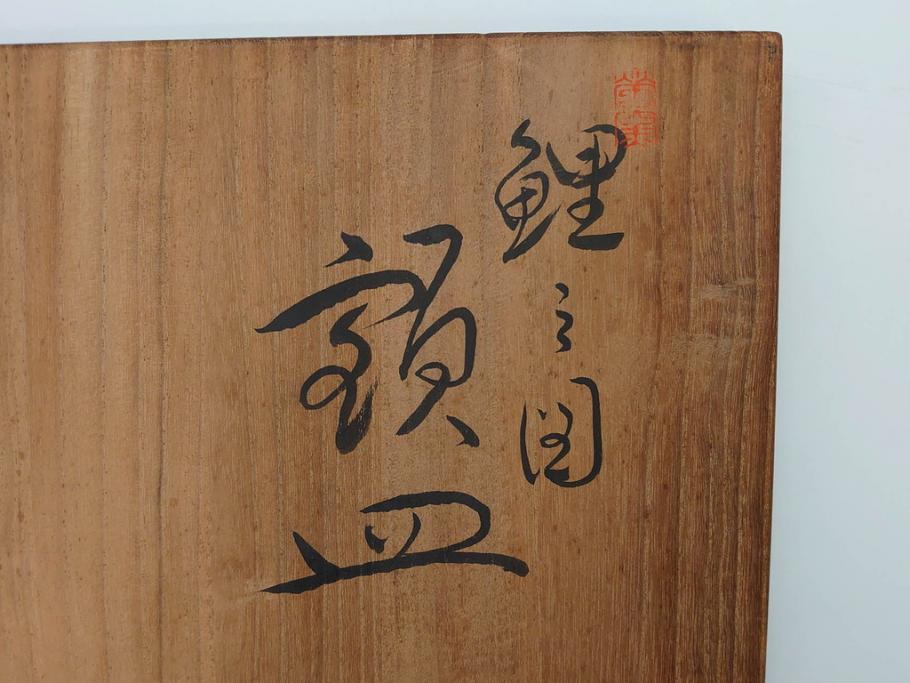 鯉之図
額皿